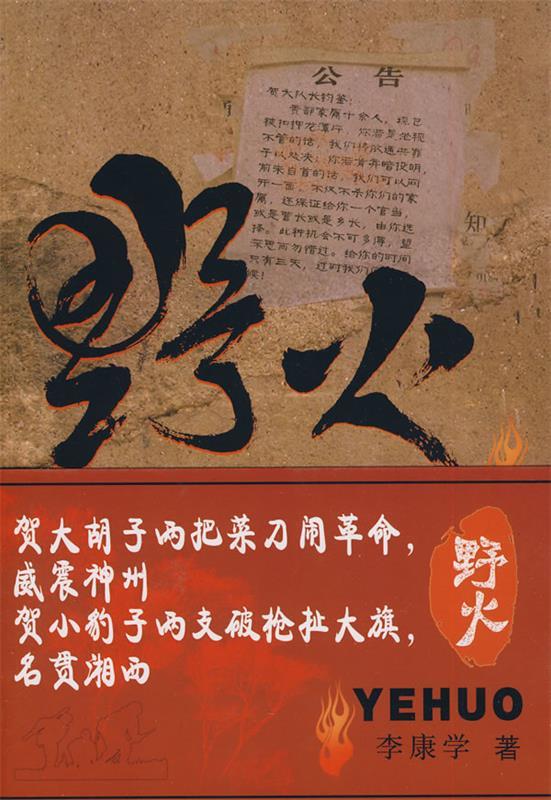 公告
贺大队长钧鉴：
贵部家属十余人，现已
被扣押龙潭厅，你若是坐视
不管的话，我们将依通共罪
予以处决；你若肯弃暗投明，
前来自首的话，我们可以网
开一面，不仅不杀你们的家
属，还保证给你一个官当，
或是营长或是乡长，由你选
择。此种机会不可多得，望
深思而勿错过。给你的时间
只有三天，过时我们
候！
知
野火
贺大胡子两把菜刀闹革命，
威震神州
贺小豹子两支破枪扯大旗，
名贯湘西
野火
YEHUO
李康学 著